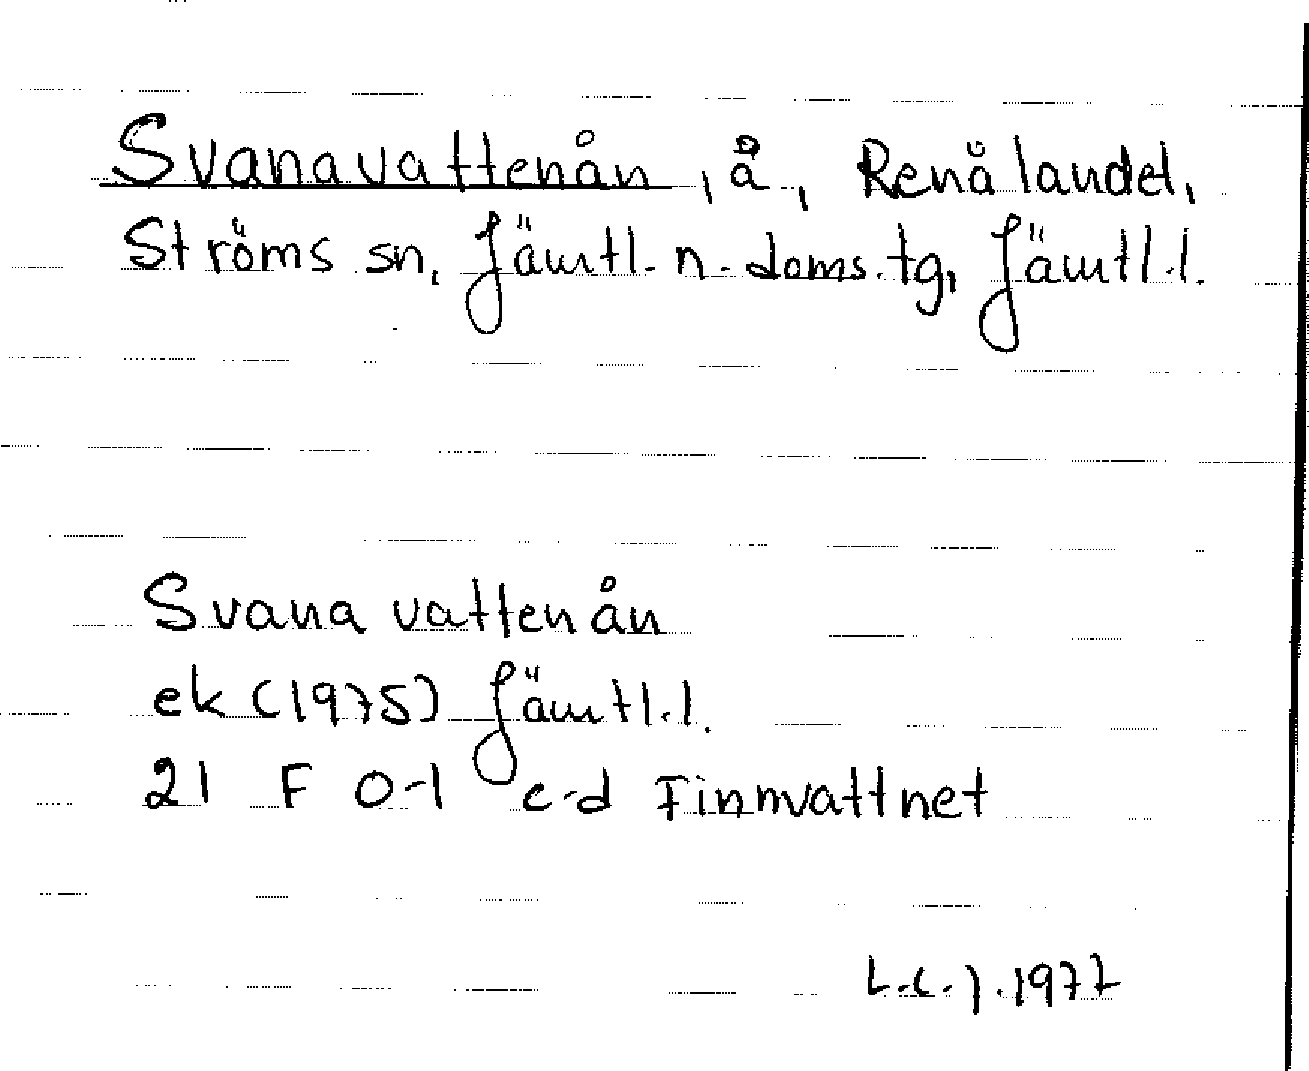 Svanavattenån, å, Renålandet,
Ströms sn, Jämtl. n. doms.tg, Jämtl.l.
Svanavattenån
ek (1975) Jämtl.l.
21 F 0-1 c-d Finnvattnet
1977